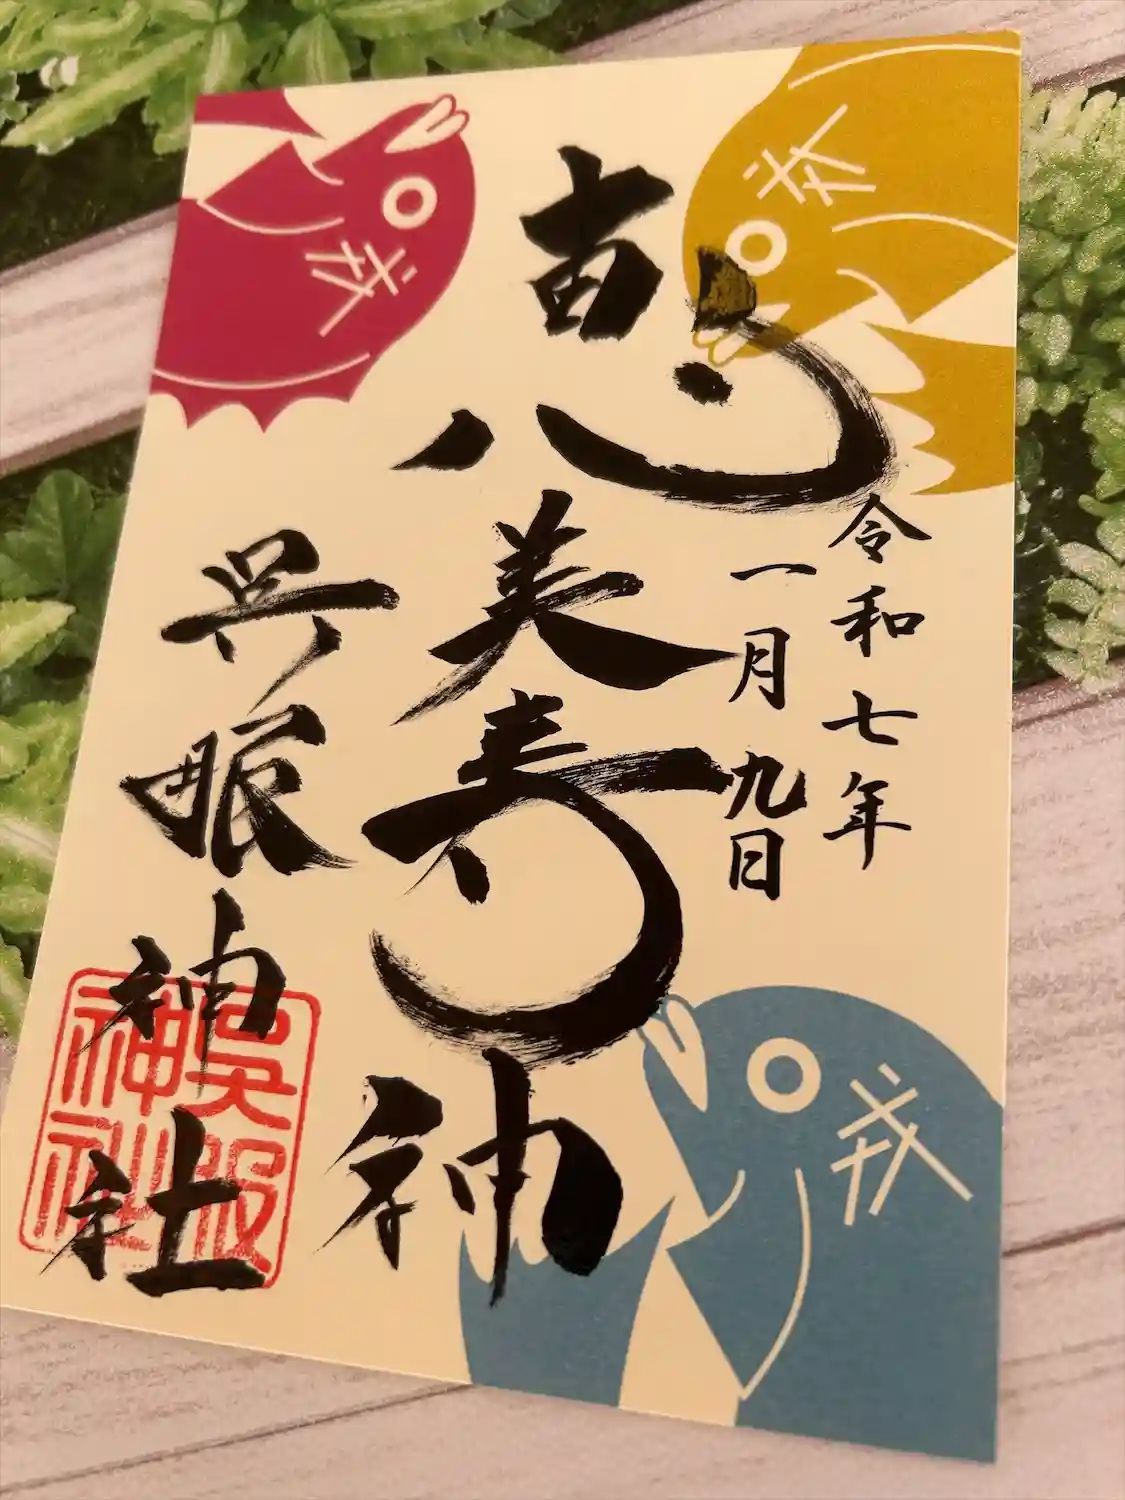 戎
戎
戎
令和七年
一月九日
恵美寿神
呉服神社
呉服
神社